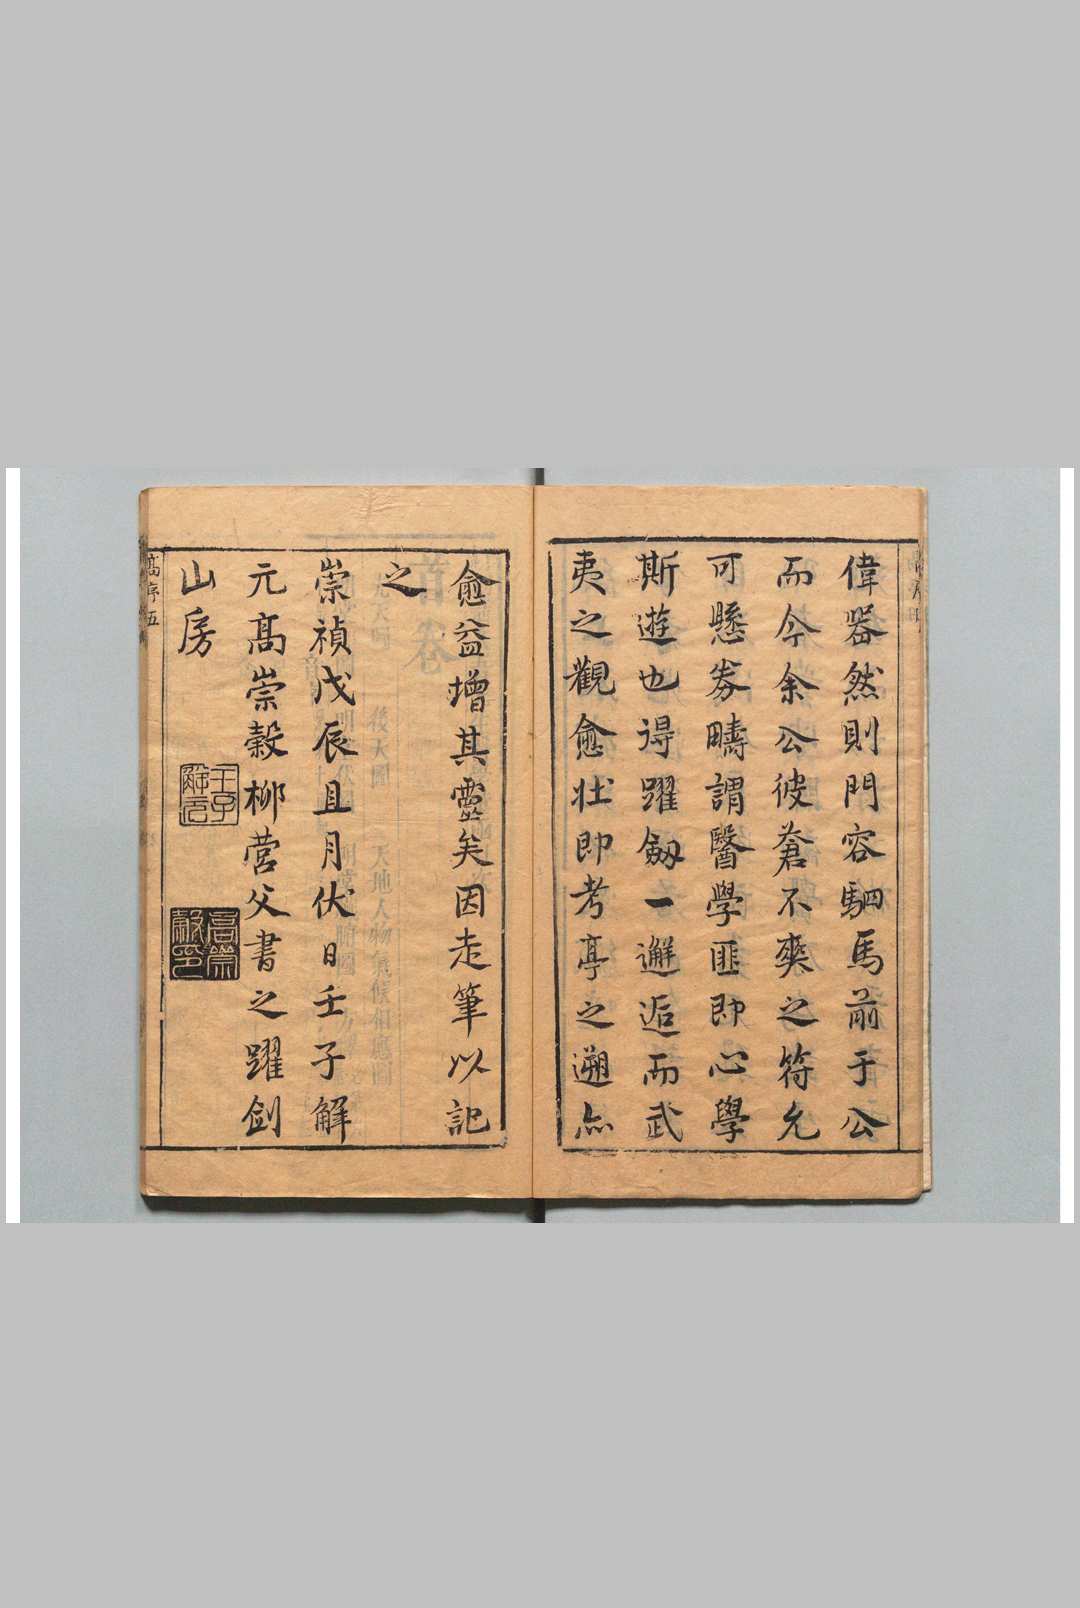 偉器然則門容駟馬前于公
而今余公彼蒼不爽之符允
可懸劵疇謂醫學匪即心學
斯遊也得躍劔一邂逅而武
夷之觀愈壯即考亭之遡点
愈益增其靈矣因走筆以記
之
崇禎戊辰且月伏日壬子解
元髙崇穀柳營父書之躍劍
山房
壬子解元
高崇穀印
髙序五